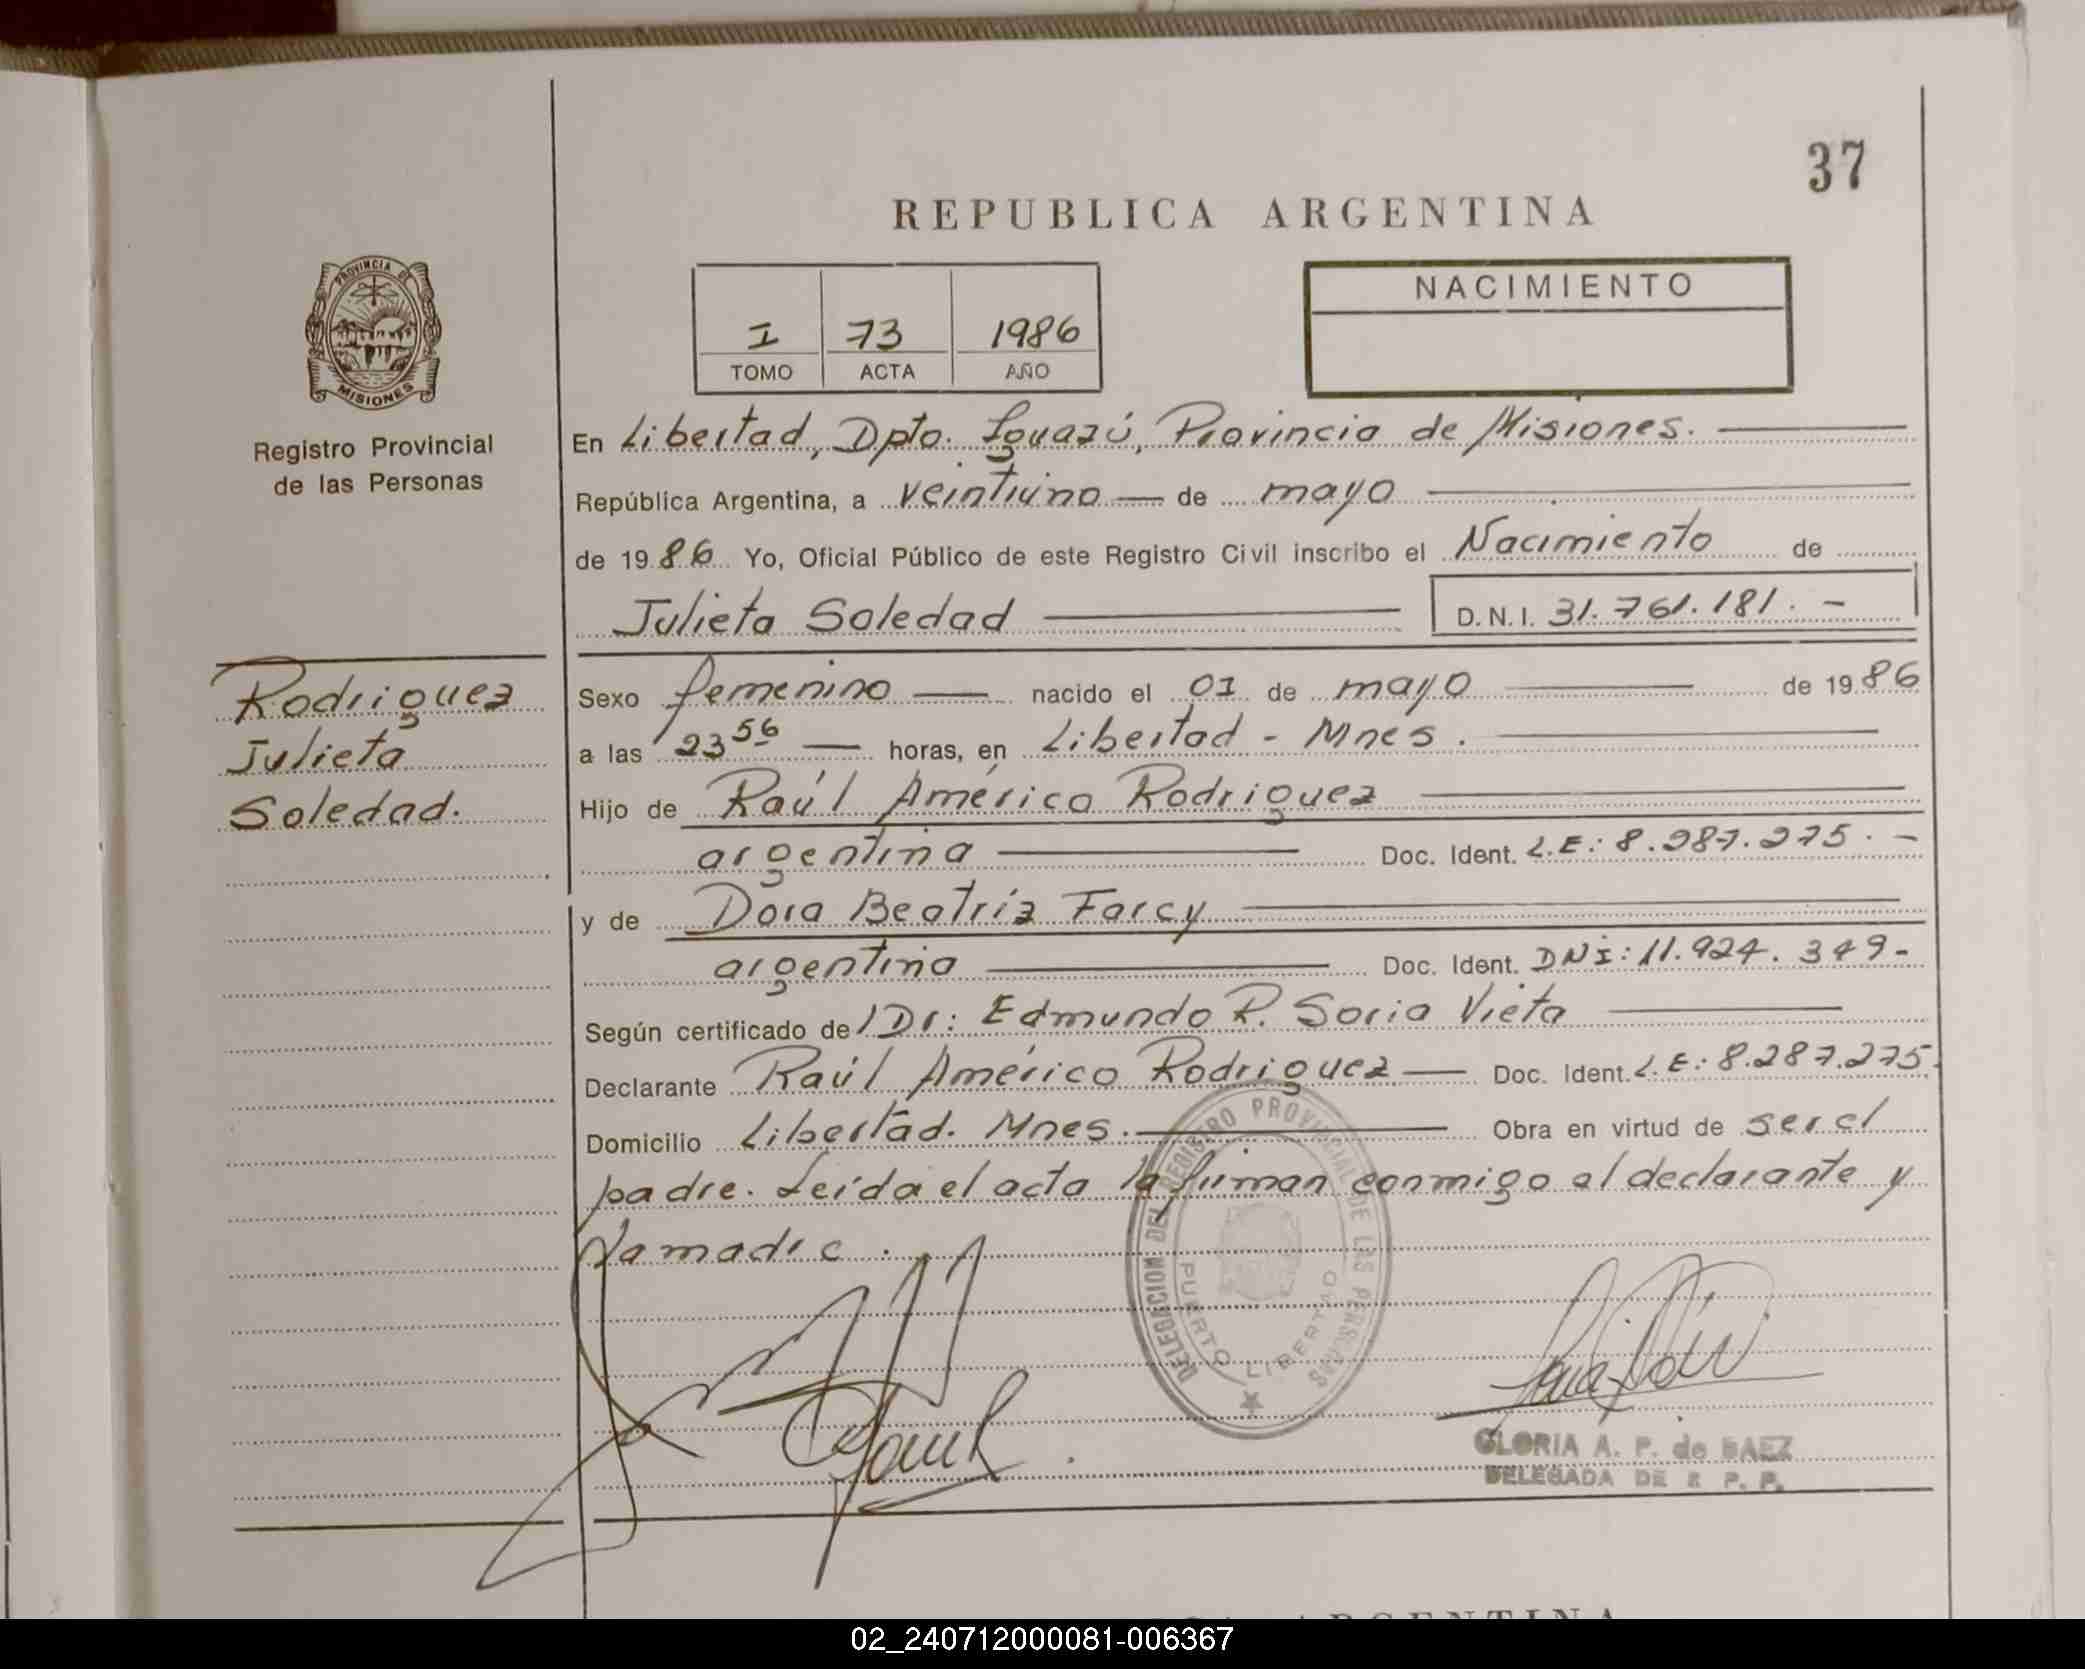 37
REPUBLICA ARGENTINA
NACIMIENTO
I 73 1986
TOMO ACTA AÑO
PROVINCIA DE
MISIONES
Registro Provincial
de las Personas
En Libertad, Dpto. Iguazú, Provincia de Misiones.
República Argentina, a veintiuno de mayo
de 1986 Yo, Oficial Público de este Registro Civil inscribo el Nacimiento de
Julieta Soledad D.N.I. 31.761.181.-
Rodriguez
Julieta
Soledad.
Sexo femenino nacido el 01 de mayo de 1986
a las 23 56 horas, en Libertad - Mnes.
Hijo de Raúl Américo Rodriguez
argentina Doc. Ident. L.E.: 8.287.275.-
y de Dora Beatriz Farcy
argentina Doc. Ident. DNI: 11.924.349-
Según certificado de Dr: Edmundo R. Soria Vieta
Declarante Raúl Américo Rodriguez Doc. Ident. L.E.: 8.287.275.
Domicilio Libertad. Mnes. Obra en virtud de ser el
padre. Leída el acta la firman conmigo el declarante y
la madre.
DELEGACION DEL REGISTRO PROVINCIAL DE LAS PERSONAS
PUERTO LIBERTAD
GLORIA A. P. de BAEZ
DELEGADA DE R. P. P.
REPUBLICA ARGENTINA
02_240712000081-006367